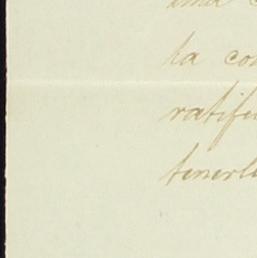 la co
ratifi
tenerl